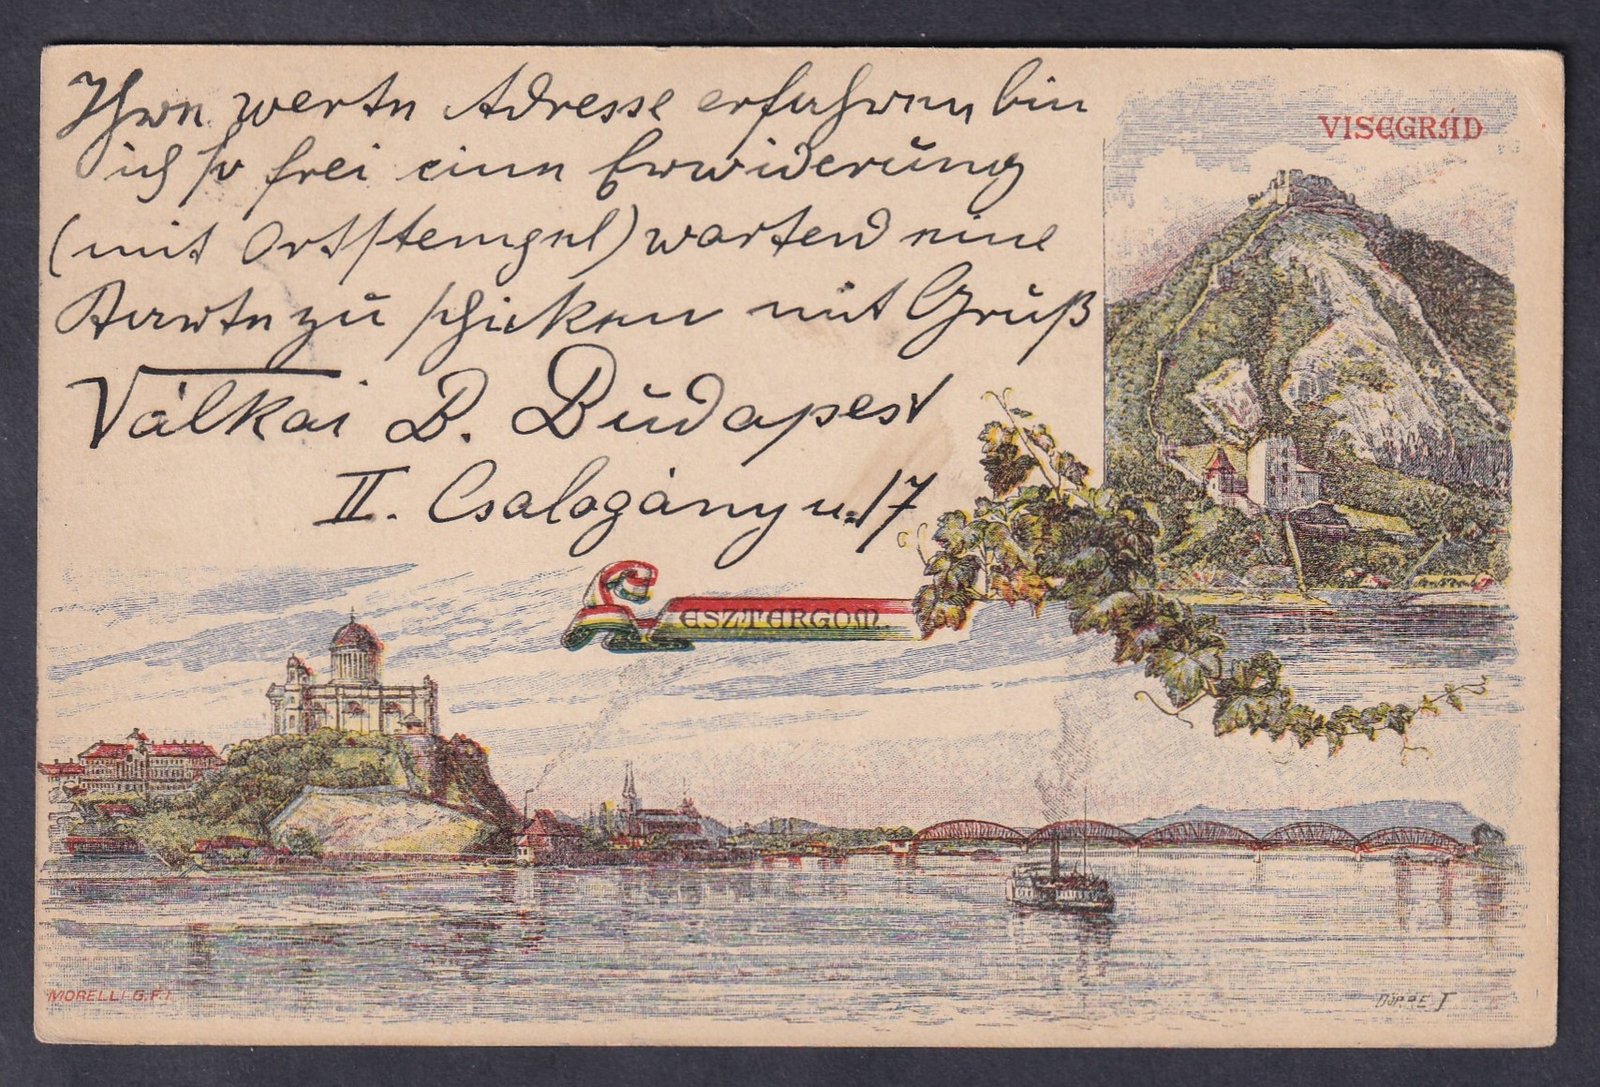 Ihre werte Adresse erfahren, bin
ich so frei eine Erwiderung
(mit Ortstempel) wartend eine
Karte zu schicken mit Gruß
Válkai B. Budapest
II. Csalogány u. 17
VISEGRÁD
ESZTERGOM.
MORELLI G. F. I.
DÖRRE T